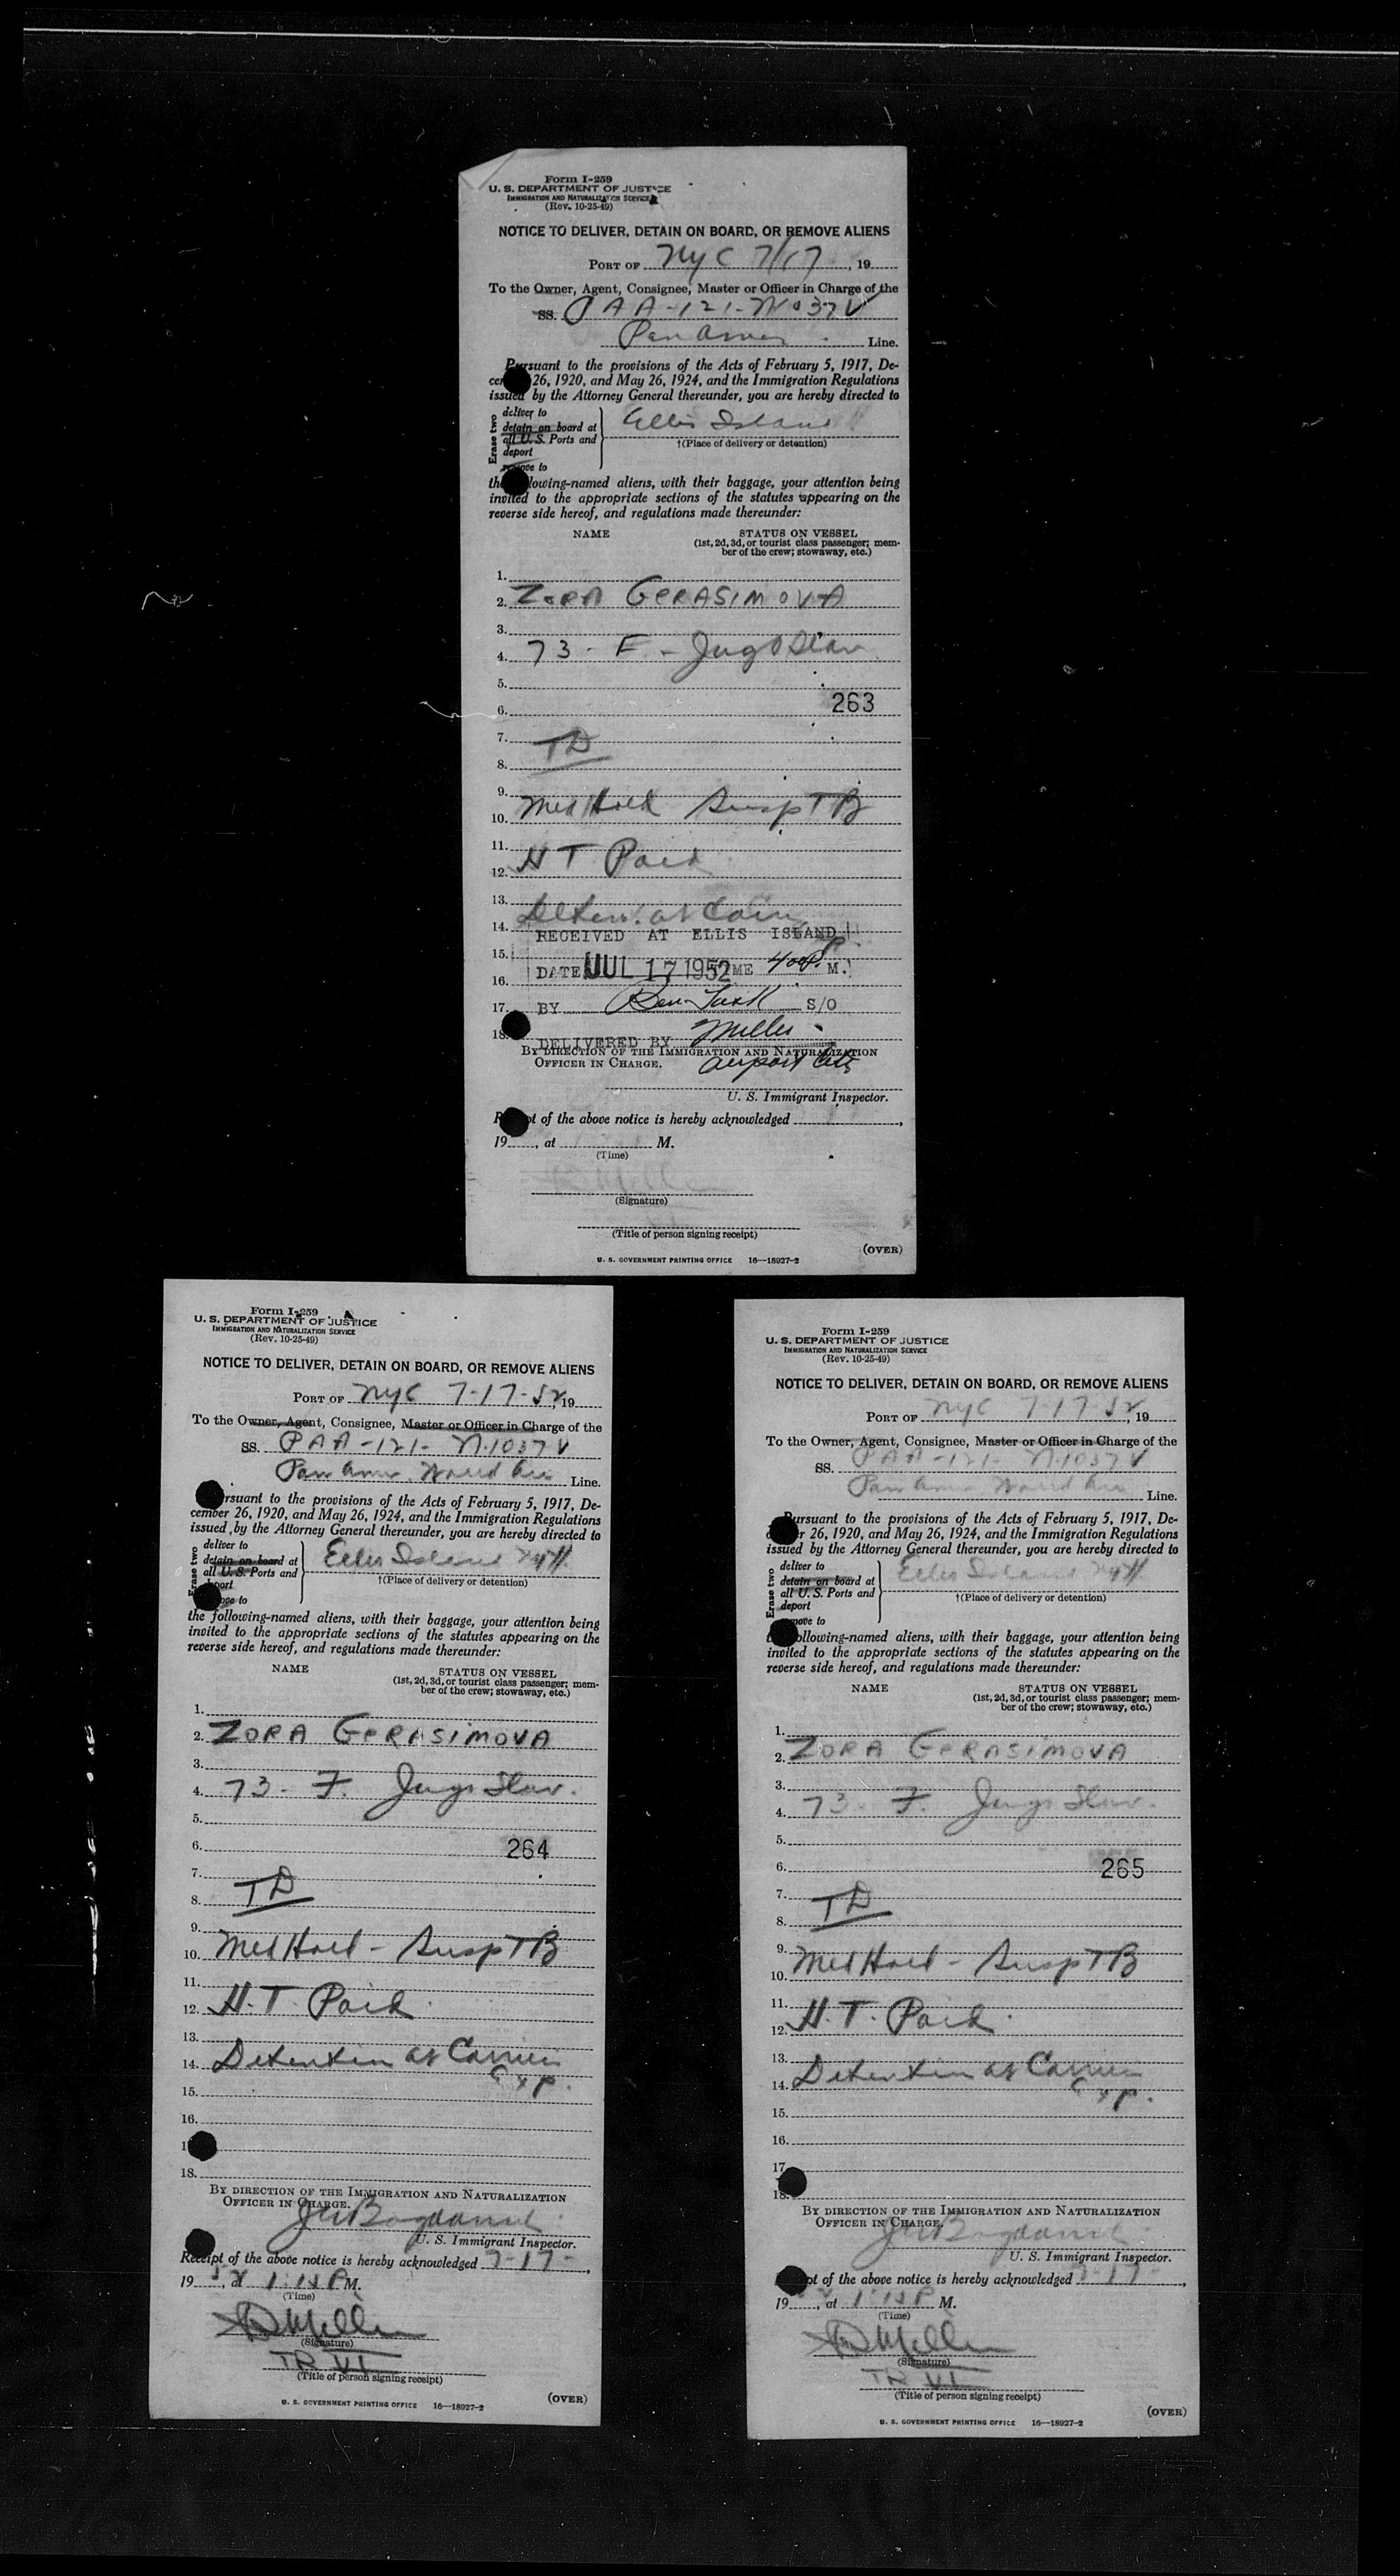 Form I-259
U. S. DEPARTMENT OF JUSTICE
IMMIGRATION AND NATURALIZATION SERVICE
(Rev. 10-25-49)
NOTICE TO DELIVER, DETAIN ON BOARD, OR REMOVE ALIENS
PORT OF NYC 7/17, 19
To the Owner, Agent, Consignee, Master or Officer in Charge of the
SS. PAA-121-N1037V
Pan Amer Line.
Pursuant to the provisions of the Acts of February 5, 1917, De-
cem 26, 1920, and May 26, 1924, and the Immigration Regulations
issued by the Attorney General thereunder, you are hereby directed to
Erase two
deliver to
detain on board at
all U. S. Ports and
deport
remove to
Ellis Island
†(Place of delivery or detention)
the following-named aliens, with their baggage, your attention being
invited to the appropriate sections of the statutes appearing on the
reverse side hereof, and regulations made thereunder:
NAME STATUS ON VESSEL
(1st, 2d, 3d, or tourist class passenger; mem-
ber of the crew; stowaway, etc.)
1.
2. ZORA GERASIMOVA
3.
4. 73 - F - Jugoslav
5.
6. 263
7. TD
8.
9.
10. Med Hold Susp TB
11.
12. H T Paid
13.
14. Deten. at
RECEIVED AT ELLIS ISLAND
15.
DATE JUL 17 1952 TIME 400 P. M.
16.
17. BY S/O
18.
DELIVERED BY Miller
BY DIRECTION OF THE IMMIGRATION AND NATURALIZATION
OFFICER IN CHARGE. airport
U. S. Immigrant Inspector.
Receipt of the above notice is hereby acknowledged
19, at M.
(Time)
(Signature)
(Title of person signing receipt)
U. S. GOVERNMENT PRINTING OFFICE 16—18927-2
(OVER)
Form I-259
U. S. DEPARTMENT OF JUSTICE
IMMIGRATION AND NATURALIZATION SERVICE
(Rev. 10-25-49)
NOTICE TO DELIVER, DETAIN ON BOARD, OR REMOVE ALIENS
PORT OF NYC 7-17-52, 19
To the Owner, Agent, Consignee, Master or Officer in Charge of the
SS. PAA-121- N.1037V
Pan Amer World Line.
Pursuant to the provisions of the Acts of February 5, 1917, De-
cember 26, 1920, and May 26, 1924, and the Immigration Regulations
issued by the Attorney General thereunder, you are hereby directed to
Erase two
deliver to
detain on board at
all U. S. Ports and
deport
remove to
Ellis Island NYH
†(Place of delivery or detention)
the following-named aliens, with their baggage, your attention being
invited to the appropriate sections of the statutes appearing on the
reverse side hereof, and regulations made thereunder:
NAME STATUS ON VESSEL
(1st, 2d, 3d, or tourist class passenger; mem-
ber of the crew; stowaway, etc.)
1.
2. ZORA GERASIMOVA
3.
4. 73 - F. Jugo Slav.
5.
6. 264
7.
8. TD
9.
10. Med Hold - Susp TB
11.
12. H.T. Paid
13.
14. Detention at Carrier
15. Exp.
16.
17
18.
BY DIRECTION OF THE IMMIGRATION AND NATURALIZATION
OFFICER IN CHARGE.
U. S. Immigrant Inspector.
Receipt of the above notice is hereby acknowledged 7-17-,
1952, at 1:15 P M.
(Time)
Miller
(Signature)
TR VI
(Title of person signing receipt)
U. S. GOVERNMENT PRINTING OFFICE 16—18927-2
(OVER)
Form I-259
U. S. DEPARTMENT OF JUSTICE
IMMIGRATION AND NATURALIZATION SERVICE
(Rev. 10-25-49)
NOTICE TO DELIVER, DETAIN ON BOARD, OR REMOVE ALIENS
PORT OF NYC 7-17-52, 19
To the Owner, Agent, Consignee, Master or Officer in Charge of the
SS. PAA-121- N.1037V
Pan Amer World Line.
Pursuant to the provisions of the Acts of February 5, 1917, De-
r 26, 1920, and May 26, 1924, and the Immigration Regulations
issued by the Attorney General thereunder, you are hereby directed to
Erase two
deliver to
detain on board at
all U. S. Ports and
deport
remove to
Ellis Island NYH
†(Place of delivery or detention)
the following-named aliens, with their baggage, your attention being
invited to the appropriate sections of the statutes appearing on the
reverse side hereof, and regulations made thereunder:
NAME STATUS ON VESSEL
(1st, 2d, 3d, or tourist class passenger; mem-
ber of the crew; stowaway, etc.)
1.
2. ZORA GERASIMOVA
3.
4. 73 - F. Jugo Slav.
5.
6. 265
7.
8. TD
9.
10. Med Hold - Susp TB
11.
12. H.T. Paid
13.
14. Detention at Carrier
15. Exp.
16.
17.
18.
BY DIRECTION OF THE IMMIGRATION AND NATURALIZATION
OFFICER IN CHARGE.
U. S. Immigrant Inspector.
Receipt of the above notice is hereby acknowledged 7-17-,
19, at 1:15 P M.
(Time)
Miller
(Signature)
TR VI
(Title of person signing receipt)
U. S. GOVERNMENT PRINTING OFFICE 16—18927-2
(OVER)